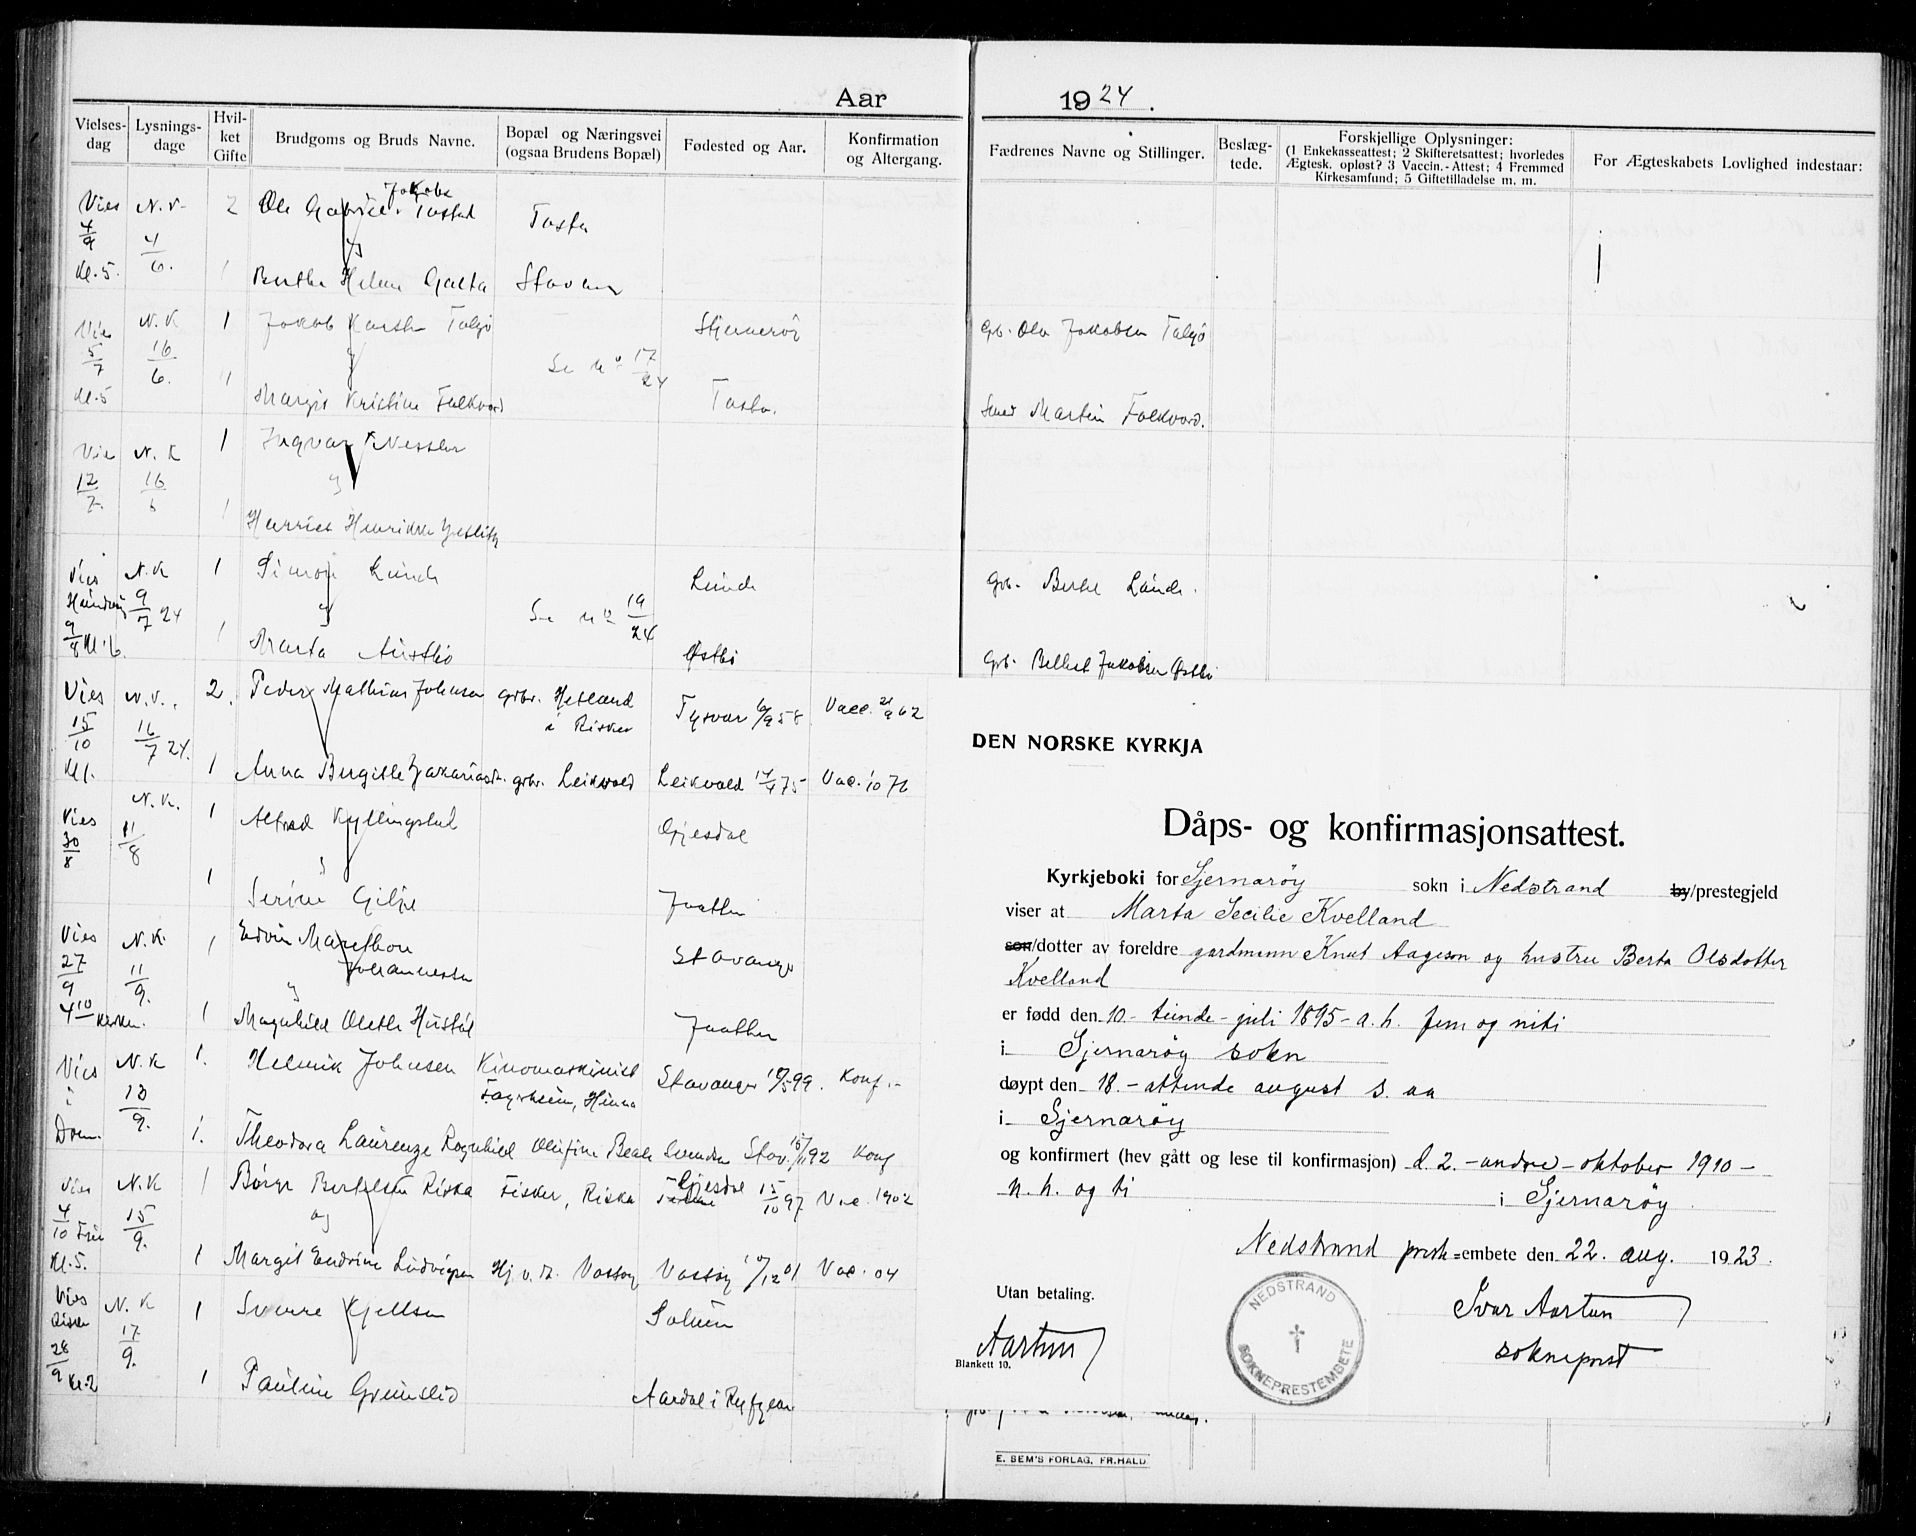 Aar 1924.
Vielses-dag
Lysnings-dage
Hvil-ket Gifte
Brudgoms og Bruds Navne.
Bopæl og Næringsvei (ogsaa Brudens Bopæl)
Fødested og Aar.
Konfirmation og Altergang.
Fædrenes Navne og Stillinger.
Beslæg-tede.
Forskjellige Oplysninger:
(1 Enkekasseattest; 2 Skifteretsattest; hvorledes
Ægtesk. opløst? 3 Vaccin.-Attest; 4 Fremmed
Kirkesamfund; 5 Giftetilladelse m. m.
For Ægteskabets Lovlighed indestaar:
Vies N.V. 2 Ole Gabriel Jakobs Tastad Tasta
4/9 4/6.
Kl. 5. 1 Berthe Helene Galta Stavang
Vies N.K 1 Jakob Karsten Talgø Stjernerøy Grb. Ole Jakobsen Talgø
5/7 16/6. Se nº 17/24
Kl. 5 1 Margit Kristine Folkvord Tasta. Smed Martin Folkvord.
Vies N.K 1 Ingvar Nessler
12/7. 16/6
1 Harriet Henrikke
Vies N.K 1 Simon Lunde Lunde Grb. Bertel Lunde.
9/7 24 Se nº 19/24
9/8 Kl. 6. 1 Marta Austbø Østbø Grb. Jakobsen Østbø
Vies N.V. 2. Peder Mathias Johnsen grbr. Hetland i Riska Tysvær 6/9 58 Vacc. 21/9 62
15/10 16/7 24.
Kl. 1 Anna Birgitte Zakariasdr. grbr. Leikvold Leikvold 14/4 75 Vac. 10 76
Vies N.K. 1 Alfred Kyllingstad Gjesdal
30/8 11/8
1 Serine Gilje Jaatten
Vies N.K. 1 Edvin Marethon Johannessen Stavanger
27/9 11/9.
4 10 Kirken. 1 Magnhild Olette Hustøl Jaatten
Vies N.K 1. Helmik Johnsen Kinomaskinist Stavanger 99. Konf.
i 13/9. Fagerheim, Hinna
Dom. 1. Theodora Laurenze Ragnhild Olufine Beate Svendsen Stav. 92 Konf
Vies N.K 1 Børge Bertelsen Riska Fisker, Riska Gjesdal 15/10 97 Vac. 1902
4/10 15/9. og
Kl. 5. 1 Margit Endrine Ludvigsen Hj. v. M. Vassøy Vassøy 01 Vac. 04
Vies N.K 1 Sverre Kjellsen
28/9 17/9.
Kl. 2 1 Pauline Grimslid Aardal i Ryfylke
DEN NORSKE KYRKJA
Dåps- og konfirmasjonsattest.
Kyrkjeboki for Sjernarøy sokn i Nedstrand by/prestegjeld
viser at Marta Secilie Kvelland
son/dotter av foreldre gardmann Knut Aageson og hustru Berta Olsdotter
Kvelland
er fødd den 10 - tiende - juli 1895 - a. h. fem og niti
i Sjernarøy sokn
døypt den 18. - attende august s. aa
i Sjernarøy
og konfirmert (hev gått og lese til konfirmasjon) d. 2. - andre - oktober 1910 -
n. h. og ti i Sjernarøy
Nedstrand prest=embete den 22. aug. 1923.
Utan betaling.
Aartun
Ivar Aartun
sokneprest
NEDSTRAND SOKNEPRESTEMBETE
Blankett 10.
E. SEM'S FORLAG, FR.HALD